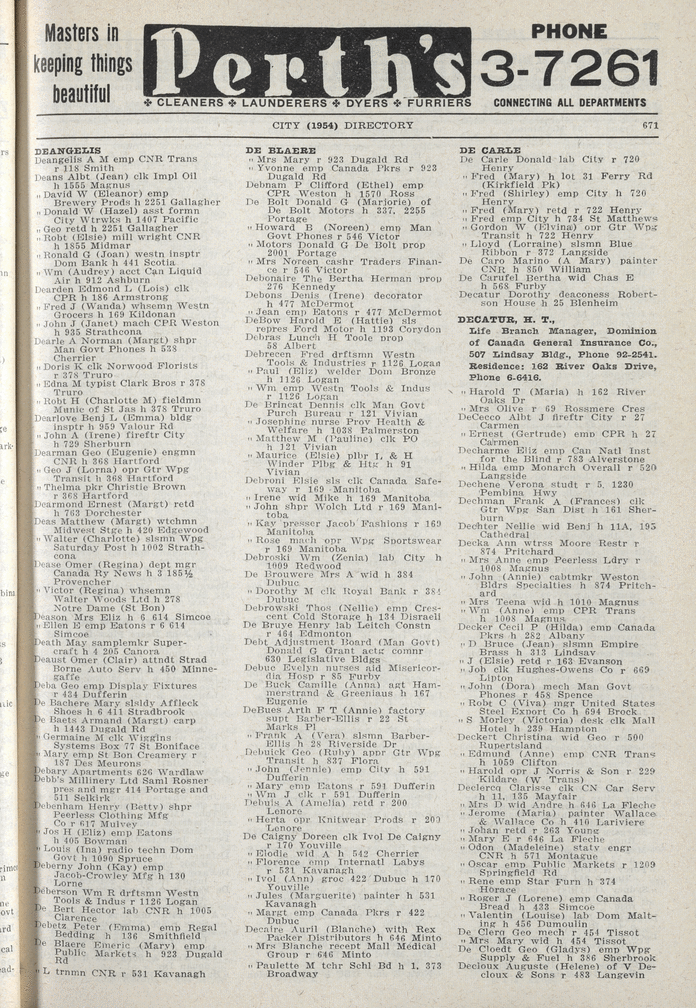 Masters in
keeping things
beautiful
Perth's
✤ CLEANERS ✤ LAUNDERERS ✤ DYERS ✤ FURRIERS
PHONE
3-7261
CONNECTING ALL DEPARTMENTS
CITY (1954) DIRECTORY 671
DEANGELIS
Deangelis A M emp CNR Trans
r 118 Smith
Deans Albt (Jean) clk Impl Oil
h 1555 Magnus
" David W (Eleanor) emp
Brewery Prods h 2251 Gallagher
" Donald W (Hazel) asst formn
City Wtrwks h 1407 Pacific
" Geo retd h 2251 Gallagher
" Robt (Elsie) mill wright CNR
h 1855 Midmar
" Ronald G (Joan) westn insptr
Dom Bank h 441 Scotia
" Wm (Audrey) acct Can Liquid
Air h 912 Ashburn
Dearden Edmond L (Lois) clk
CPR h 186 Armstrong
" Fred J (Wanda) whsemn Westn
Grocers h 169 Kildonan
" John J (Janet) mach CPR Weston
h 935 Strathcona
Dearle A Norman (Margt) shpr
Man Govt Phones h 538
Cherrier
" Doris K clk Norwood Florists
r 378 Truro
" Edna M typist Clark Bros r 378
Truro
" Robt H (Charlotte M) fieldmn
Munic of St Jas h 378 Truro
Dearlove Benj L (Emma) bldg
insptr h 959 Valour Rd
" John A (Irene) fireftr City
h 729 Sherburn
Dearman Geo (Eugenie) engmn
CNR h 368 Hartford
" Geo J (Lorna) opr Gtr Wpg
Transit h 368 Hartford
" Thelma pkr Christie Brown
r 368 Hartford
Dearmond Ernest (Margt) retd
h 763 Dorchester
Deas Matthew (Margt) wtchmn
Midwest Stge h 420 Edgewood
" Walter (Charlotte) slsmn Wpg
Saturday Post h 1002 Strath-
cona
Dease Omer (Regina) dept mgr
Canada Ry News h 3 185½
Provencher
" Victor (Regina) whsemn
Walter Woods Ltd h 278
Notre Dame (St Bon)
Deason Mrs Eliz h 6 614 Simcoe
" Ellen E emp Eatons r 6 614
Simcoe
Death May samplemkr Super-
craft h 4 205 Canora
Deaust Omer (Clair) attndt Strad
Borne Auto Serv h 450 Minne-
gaffe
Deba Geo emp Display Fixtures
r 434 Dufferin
De Bachere Mary slsldy Affleck
Shoes h 6 411 Stradbrook
De Baets Armand (Margt) carp
h 1443 Dugald Rd
" Germaine M clk Wiggins
Systems Box 77 St Boniface
" Mary emp St Bon Creamery r
187 Des Meurons
Debary Apartments 626 Wardlaw
Debb's Millinery Ltd Saml Rosner
pres and mgr 414 Portage and
511 Selkirk
Debenham Henry (Betty) shpr
Peerless Clothing Mfg
Co r 617 Mulvey
" Jos H (Eliz) emp Eatons
h 405 Bowman
" Louis (Ina) radio techn Dom
Govt h 1090 Spruce
Deberny John (Kay) emp
Jacob-Crowley Mfg h 130
Lorne
Deberson Wm R drftsmn Westn
Tools & Indus r 1126 Logan
De Bert Hector lab CNR h 1005
Clarence
Debetz Peter (Emma) emp Regal
Bedding h 136 Smithfield
De Blaere Emeric (Mary) emp
Public Markets h 923 Dugald
Rd
" L trnmn CNR r 531 Kavanagh
DE BLAERE
" Mrs Mary r 923 Dugald Rd
" Yvonne emp Canada Pkrs r 923
Dugald Rd
Debnam P Clifford (Ethel) emp
CPR Weston h 1570 Ross
De Bolt Donald G (Marjorie) of
De Bolt Motors h 337, 2255
Portage
" Howard B (Noreen) emp Man
Govt Phones r 546 Victor
" Motors Donald G De Bolt prop
2001 Portage
" Mrs Noreen cashr Traders Finan-
ce r 546 Victor
Debonaire The Bertha Herman prop
276 Kennedy
Debons Denis (Irene) decorator
h 477 McDermot
" Jean emp Eatons r 477 McDermot
DeBow Harold E (Hattie) sls
repres Ford Motor h 1193 Corydon
Debras Lunch H Toole prop
58 Albert
Debrecen Fred drftsmn Westn
Tools & Industries r 1126 Logan
" Paul (Eliz) welder Dom Bronze
h 1126 Logan
" Wm emp Westn Tools & Indus
r 1126 Logan
De Brincat Dennis clk Man Govt
Purch Bureau r 121 Vivian
" Josephine nurse Prov Health &
Welfare h 1038 Palmerston
" Matthew M (Pauline) clk PO
h 121 Vivian
" Maurice (Elsie) plbr L & H
Winder Plbg & Htg h 91
Vivian
Debroni Elsie sls clk Canada Safe-
way r 169 Manitoba
" Irene wid Mike h 169 Manitoba
" John shpr Wolch Ltd r 169 Mani-
toba
" Kay presser Jacob Fashions r 169
Manitoba
" Rose mach opr Wpg Sportswear
r 169 Manitoba
Debroski Wm (Zenia) lab City h
1009 Redwood
De Brouwere Mrs A wid h 384
Dubuc
" Dorothy M clk Royal Bank r 384
Dubuc
Debrowski Thos (Nellie) emp Cres-
cent Cold Storage h 134 Disraeli
De Bruye Henry lab Leitch Constn
r 464 Edmonton
Debt Adjustment Board (Man Govt)
Donald G Grant actg comnr
630 Legislative Bldgs
Debuc Evelyn nurses aid Misericor-
dia Hosp r 85 Furby
De Buck Camille (Anna) agt Ham-
merstrand & Greenlaus h 167
Eugenie
DeBues Arth F T (Annie) factory
supt Barber-Ellis r 22 St
Marks Pl
" Frank A (Vera) slsmn Barber-
Ellis h 28 Riverside Dr
Debuick Geo (Ruby) appr Gtr Wpg
Transit h 837 Flora
" John (Jennie) emp City h 591
Dufferin
" Mary emp Eatons r 591 Dufferin
" Wm J clk r 591 Dufferin
Debuis A (Amelia) retd r 200
Lenore
" Herta opr Knitwear Prods r 200
Lenore
De Caigny Doreen clk Ivol De Caigny
r 170 Youville
" Elodie wid A h 542 Cherrier
" Florence emp Internatl Labys
r 531 Kavanagh
" Ivol (Ann) groc 422 Dubuc h 170
Youville
" Jules (Marguerite) painter h 531
Kavanagh
" Margt emp Canada Pkrs r 422
Dubuc
Decaire Auril (Blanche) with Rex
Packer Distributors h 646 Minto
" Mrs Blanche recept Mall Medical
Group r 646 Minto
" Paulette M tchr Schl Bd h 1, 373
Broadway
DE CARLE
De Carle Donald lab City r 720
Henry
" Fred (Mary) h lot 31 Ferry Rd
(Kirkfield Pk)
" Fred (Shirley) emp City h 720
Henry
" Fred (Mary) retd r 722 Henry
" Fred emp City h 734 St Matthews
" Gordon W (Elvina) opr Gtr Wpg
Transit h 722 Henry
" Lloyd (Lorraine) slsmn Blue
Ribbon r 872 Langside
De Caro Marino (A Mary) painter
CNR h 850 William
De Carufel Bertha wid Chas E
h 568 Furby
Decatur Dorothy deaconess Robert-
son House h 25 Blenheim
DECATUR, H. T.,
Life Branch Manager, Dominion
of Canada General Insurance Co.,
507 Lindsay Bldg., Phone 92-2541.
Residence: 162 River Oaks Drive,
Phone 6-6416.
" Harold T (Maria) h 162 River
Oaks Dr
" Mrs Olive r 69 Rossmere Cres
DeCecco Albt J fireftr City r 27
Carmen
" Ernest (Gertrude) emp CPR h 27
Carmen
Decharme Eliz emp Can Natl Inst
for the Blind r 783 Alverstone
" Hilda emp Monarch Overall r 520
Langside
Dechene Verona studt r 5, 1230
Pembina Hwy
Dechman Frank A (Frances) clk
Gtr Wpg San Dist h 161 Sher-
burn
Dechter Nellie wid Benj h 11A, 195
Cathedral
Decka Ann wtrss Moore Restr r
874 Pritchard
" Mrs Anne emp Peerless Ldry r
1008 Magnus
" John (Annie) cabtmkr Weston
Bldrs Specialties h 874 Pritch-
ard
" Mrs Teena wid h 1010 Magnus
" Wm (Anne) emp CPR Trans
h 1008 Magnus
Decker Cecil P (Hilda) emp Canada
Pkrs h 282 Albany
" D Bruce (Jean) slsmn Empire
Brass h 313 Lindsay
" J (Elsie) retd r 163 Evanson
" Job clk Hughes-Owens Co r 669
Lipton
" John (Dora) mech Man Govt
Phones r 458 Spence
" Robt C (Viva) mgr United States
Steel Export Co h 694 Brock
" S Morley (Victoria) desk clk Mall
Hotel h 239 Hampton
Deckert Christina wid Geo r 500
Rupertsland
" Edmund (Anne) emp CNR Trans
h 1059 Clifton
" Harold opr J Norris & Son r 229
Kildare (W Trans)
Declercq Clarisse clk CN Car Serv
h 11, 135 Mayfair
" Mrs D wid Andre h 646 La Fleche
" Jerome (Maria) painter Wallace
& Wallace Co h 416 Lariviere
" Johan retd r 263 Young
" Mary E r 646 La Fleche
" Odon (Madeleine) staty engr
CNR h 571 Montague
" Oscar emp Public Markets r 1209
Springfield Rd
" Rene emp Star Furn h 374
Horace
" Roger J (Lorene) emp Canada
Bread h 433 Simcoe
" Valentin (Louise) lab Dom Malt-
ing h 456 Dumoulin
De Clerq Geo mech r 454 Tissot
" Mrs Mary wid h 454 Tissot
De Cloedt Geo (Gladys) emp Wpg
Supply & Fuel h 386 Sherbrook
Decloux Auguste (Helene) of V De-
cloux & Sons r 483 Langevin